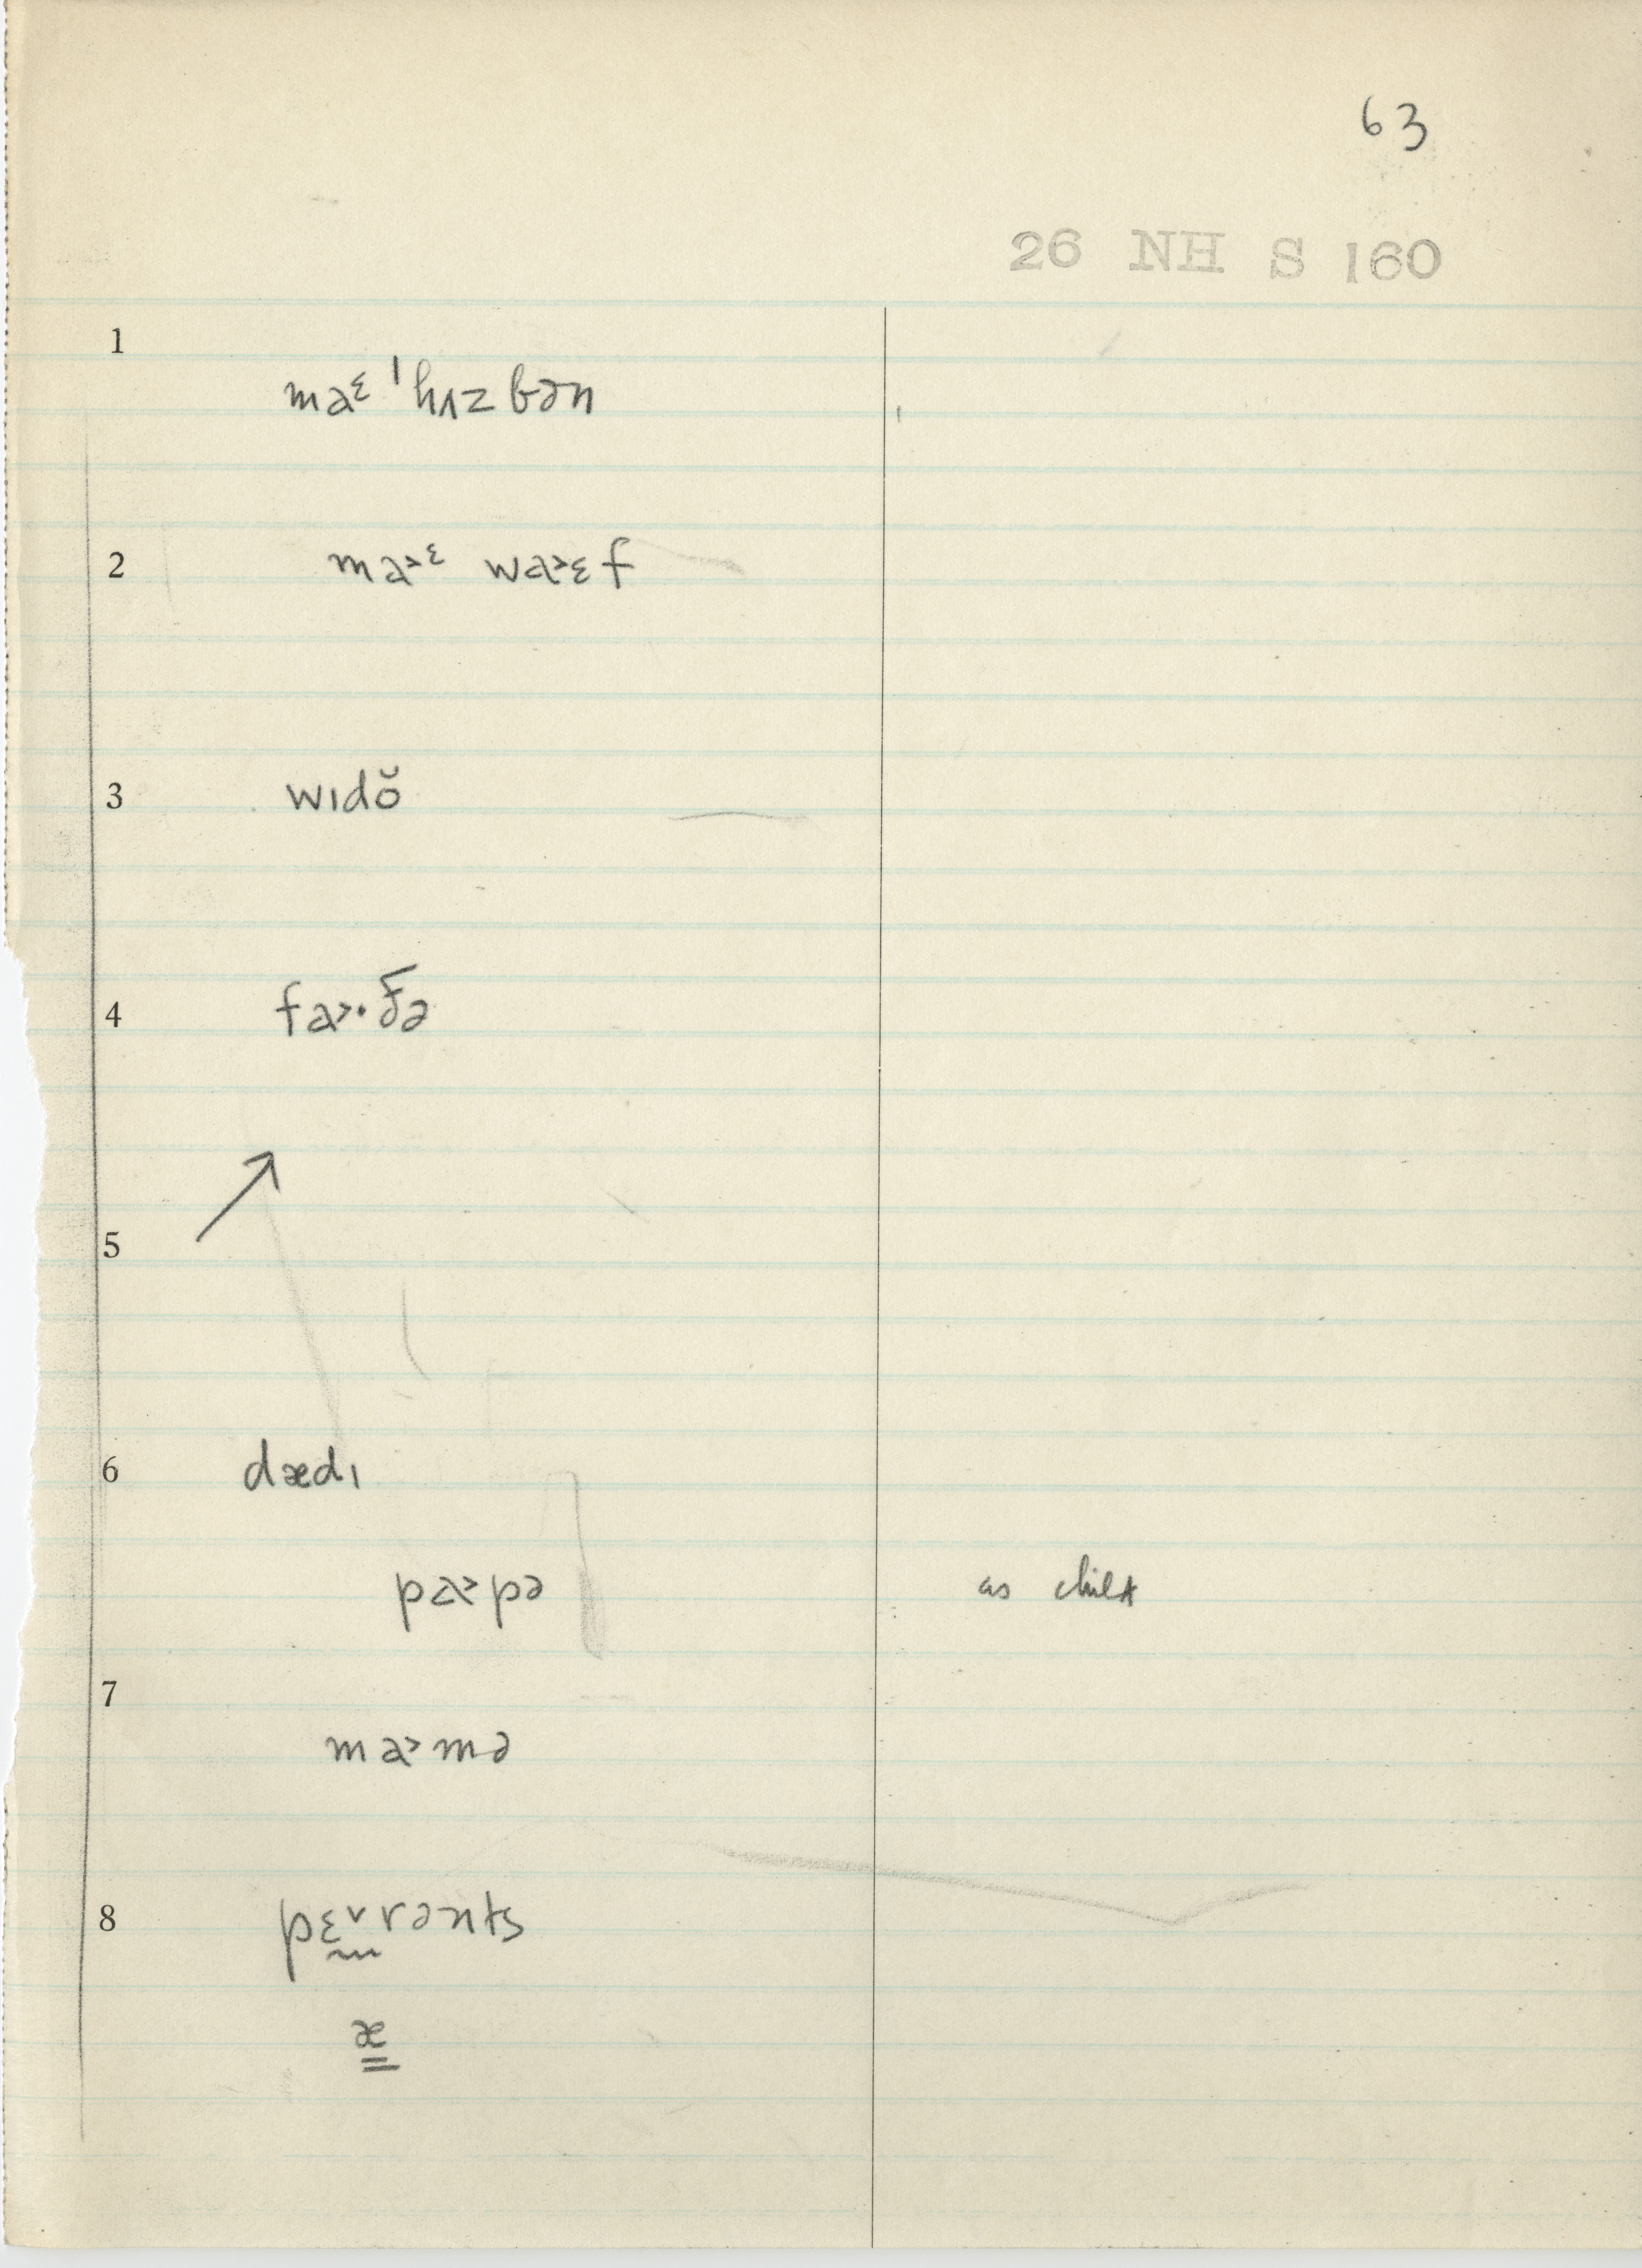 63
26 NH S 160
1
maᵋ ˈhʌzbən
2
ma˃ᵋ wa˃ɛf
3
wɪdŏ
4
fa˃·ðə
5
6
dædɪ
pa˃pə
as child
7
ma˃mə
8
pɛ˅rənts
æ